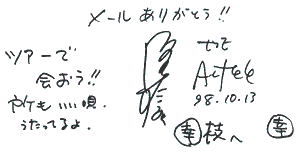 メール ありがとう!!
ツアーで
会おう!!
やケも いい 唄.
うたってるよ.
98.10.13
幸枝へ
幸